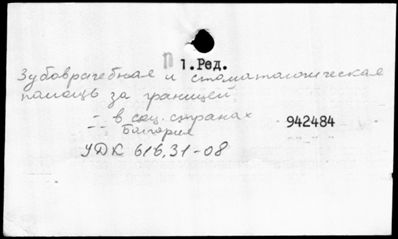 П 1.Ред.
Зубоврачебная и стоматологическая
помощь за границей
-"- в соц. странах
-"- Болгария 942484
УДК 616.31-08